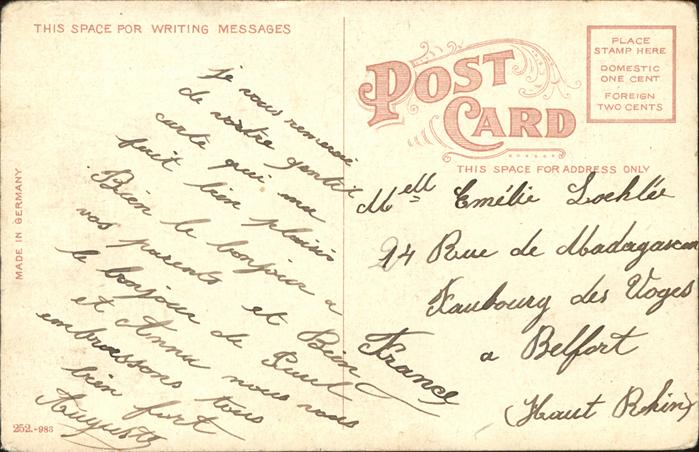 THIS SPACE FOR WRITING MESSAGES
je vous remercie
de votre gentil
carte qui ma
fait bien plaisir
Bien le bonjour a
vos parents et Bien
le bonjour de Paul
et Anna nous vous
embrassons tous
bien fort
Auguste
MADE IN GERMANY
252.-983
POST CARD
PLACE
STAMP HERE
DOMESTIC
ONE CENT
FOREIGN
TWO CENTS
THIS SPACE FOR ADDRESS ONLY
Mell Emélie
24 Rue de Madagascar
Faubourg des Voges
a Belfort
France
(Haut Rhin)